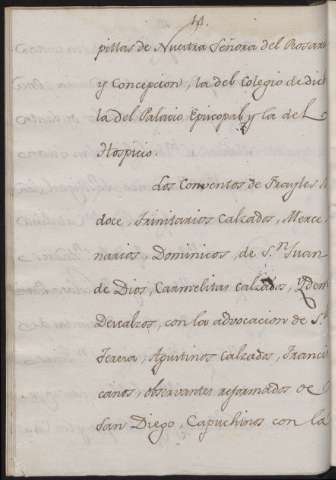 14.
pillas de Nuestra Señora del Rosario
y Concepcion, la del Colegio de
la del Palacio Episcopal, y la del
Hospicio.
Los Conventos de Frayles
doce, Trinitarios Calzados, Merce
narios, Dominicos, de S.n Juan
de Dios, Carmelitas calzados, Ydem
Descalzos, con la advocacion de S.ta
Teresa, Agustinos Calzados, Francis
canos, observantes reformados de
San Diego, Capuchinos con la